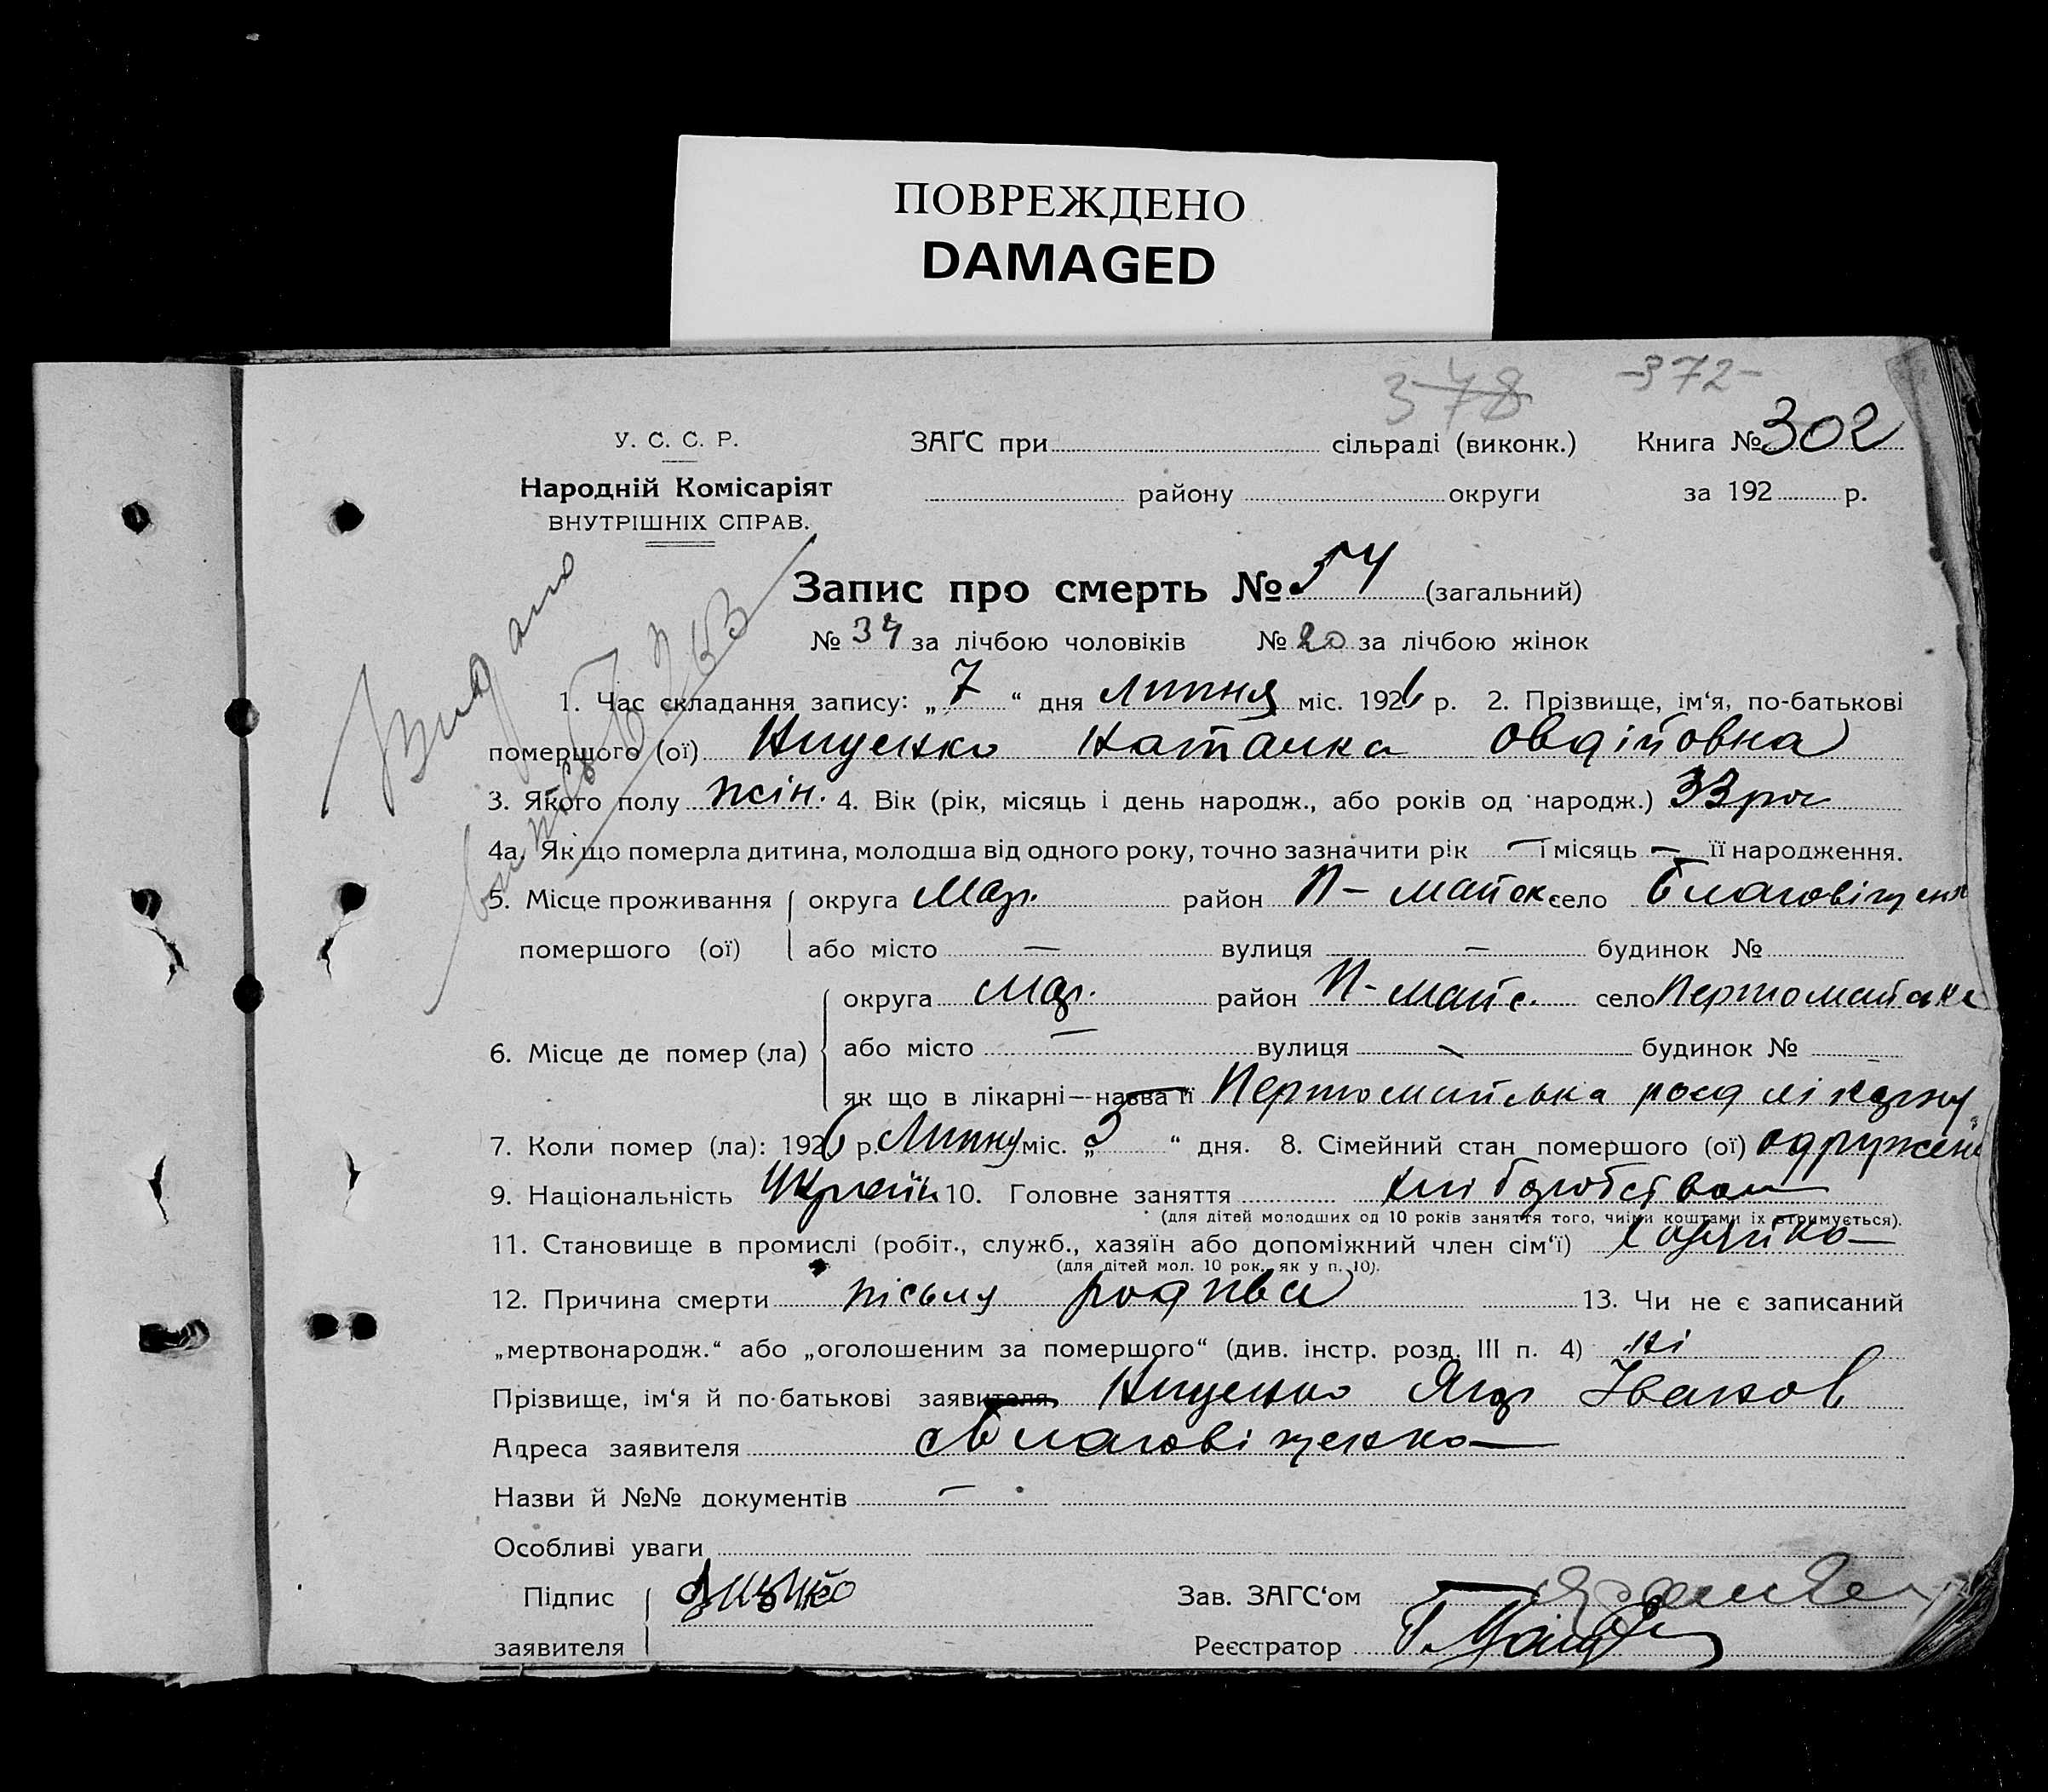 ПОВРЕЖДЕНО
DAMAGED
378 -372-
У. С. С. Р. ЗАҐС при сільраді (виконк.) Книга № 302
Народній Комісаріят району округи за 192 р.
ВНУТРІШНІХ СПРАВ.
Видано
Запис про смерть № 54 (загальний)
№ 34 за лічбою чоловіків № 20 за лічбою жінок
1. Час складання запису: „7“ дня липня міс. 1926 р. 2. Прізвище, ім‘я, по-батькові
помершого (ої) Ниценко Наталка Овдіївна
3. Якого полу жін. 4. Вік (рік, місяць і день народж., або років од народж.) 33 рок
4а. Як що померла дитина, молодша від одного року, точно зазначити рік — і місяць — її народження.
5. Місце проживання округа Мар. район П-майск село Благовіщенк
помершого (ої) або місто — вулиця — будинок №
округа Мар. район П-майс. село Первомайське
6. Місце де помер (ла) або місто — вулиця — будинок №
як що в лікарні—назва її Первомайська роед лікарну
7. Коли помер (ла): 1926 р. Липня міс. „3“ дня. 8. Сімейний стан помершого (ої) одружені
9. Національність Україн 10. Головне заняття хліборобством
(для дітей молодших од 10 років заняття того, чиїми коштами їх втримується).
11. Становище в промислі (робіт., служб., хазяїн або допоміжний член сім‘ї) хазяйка
(для дітей мол. 10 рок. як у п. 10).
12. Причина смерти після родива 13. Чи не є записаний
„мертвонародж.“ або „оголошеним за помершого“ (див. інстр. розд. III п. 4) ні
Прізвище, ім‘я й по-батькові заявителя Ниценко Яков Іванов
Адреса заявителя с Благовіщенка
Назви й №№ документів —
Особливі уваги
Підпис Зав. ЗАГС‘ом
заявителя Реєстратор